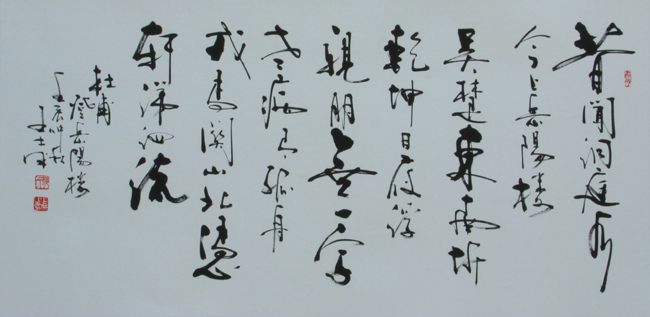 昔闻洞庭水
今上岳陽楼
吴楚東南坼
乾坤日夜浮
親朋無一字
老病有孤舟
戎馬關山北憑
軒涕泗流
杜甫
登岳陽楼
壬辰仲秋